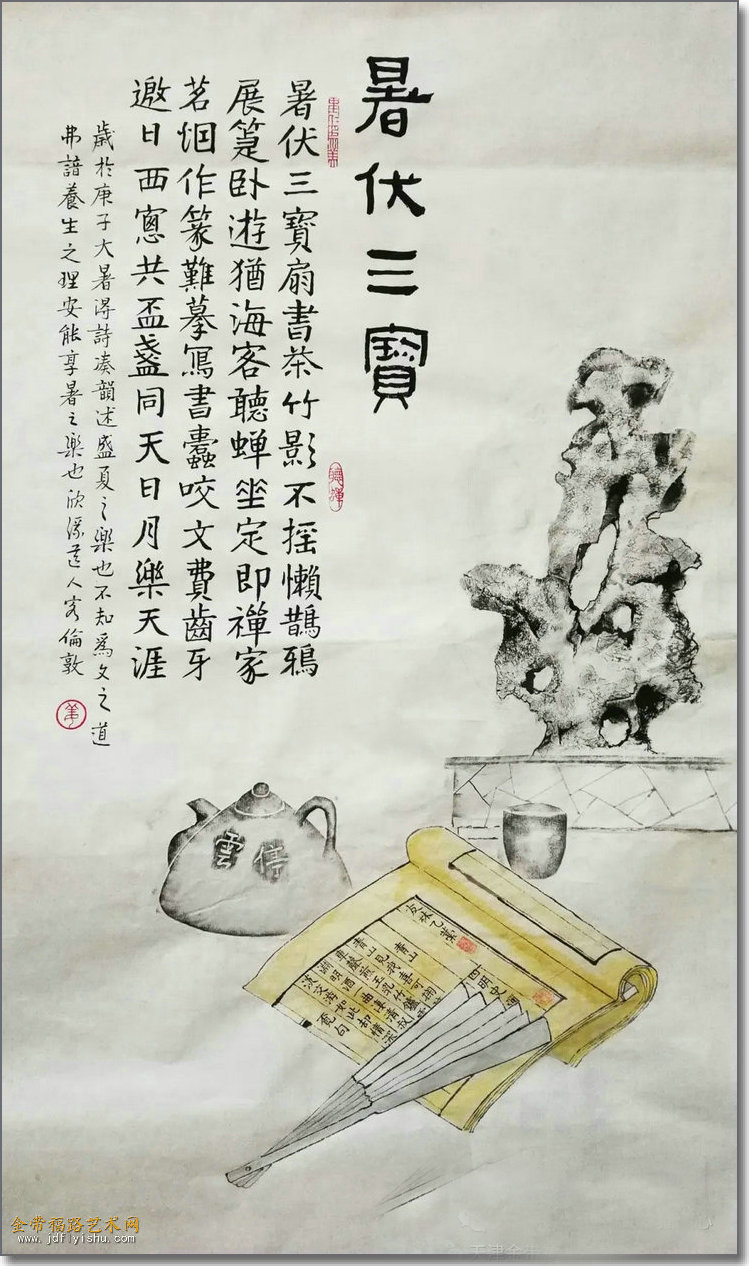 暑伏三寶
暑伏三寶扇書茶竹影不摇懶鵲鴉
展筵卧遊猶海客聽蝉坐定即禪家
茗烟作篆難摹寫書蠹咬文費齒牙
邀日西窻共盃盞同天日月樂天涯
歳於庚子大暑得詩凑韻述盛夏之樂也不知爲文之道
弗諳養生之理安能享暑之樂也欣
人客倫敦
雲停
友林乙藁
四明史
青山
青山見我喜可掬
金带福路艺术网
www.jdflyishu.com